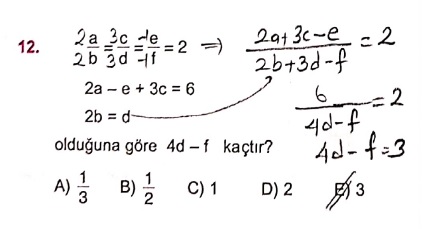 12. 2a/2b = 3c/3d = -1e/-1f = 2 => 2a+3c-e/2b+3d-f = 2
2a – e + 3c = 6
2b = d
6/4d-f = 2
olduğuna göre 4d – f kaçtır?
4d-f=3
A) 1/3 B) 1/2 C) 1 D) 2 E) 3